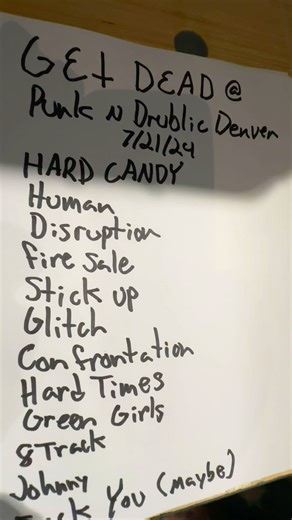 GEt DEAD @
Punk N Drublic Denver
7/21/24
HARD CANDY
Human
Disruption
fire Sale
Stick up
Glitch
Confrontation
Hard Times
Green Girls
8 Track
Johnny
Fuck You (Maybe)